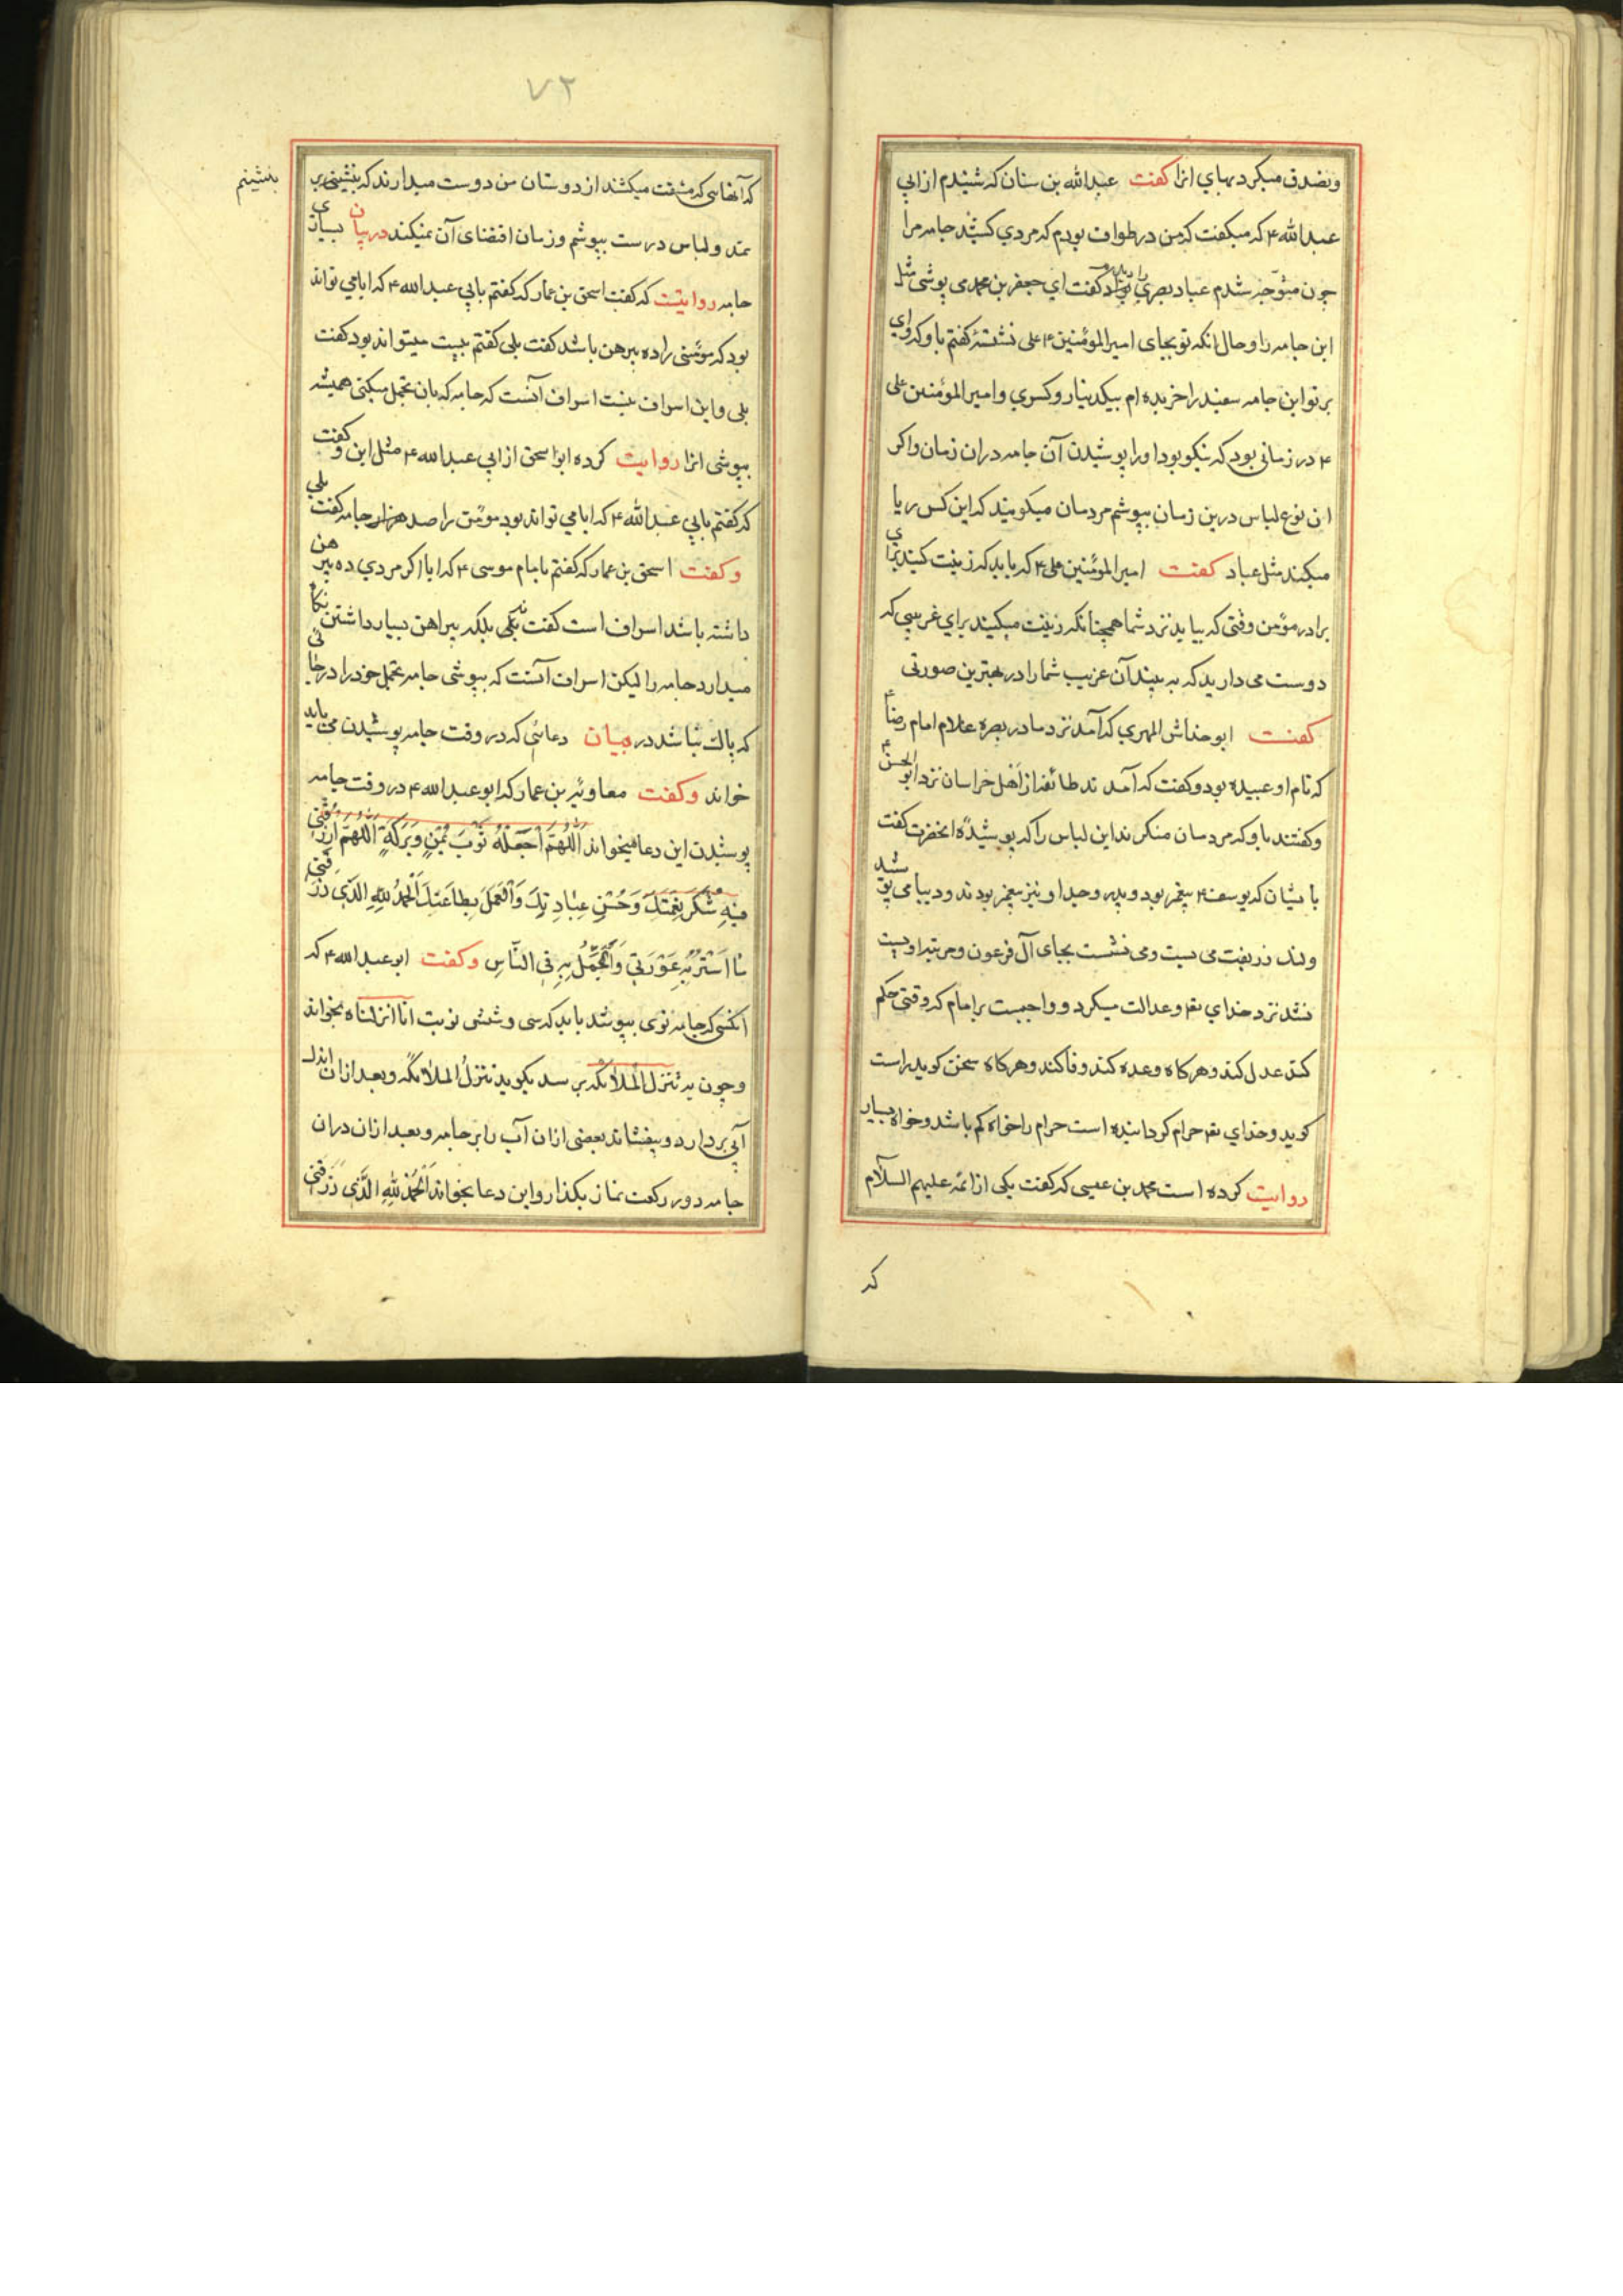 وتصدق میکرد بهاي انرا کفت عبدالله بن سنان که شنیدم از ابي
عبدالله ۴ که میکفت که من در طواف بودم که مردي کشید جامه مرا
چون متوجه شدم عباد بصري بود کفت اي جعفر بن محمد می پوشی مثل
این جامه را و حال انکه تو بجای امیرالمؤمنین علی ۴ نشستهٔ کفتم باو که وای
بر تو این جامه سفید را خریده ام بیکدینار و کسري و امیرالمؤمنین علی
۴ در زمانی بود که نیکو بود او را پوشیدن آن جامه در ان زمان و اکر
این نوع لباس درین زمان بپوشم مردمان میکویند که این کس ریا
میکند مثل عباد کفت امیرالمؤمنین علی ۴ که باید که زینت کنید برای
برادر مؤمن وقتی که بیاید نزد شما همچنانکه زینت میکنید براي غریبی که
دوست می دارید که به بیند آن غریب شما را در بهترین صورتی
کفت ابو خداش المهري که آمد نزد ما در بصره غلام امام رضا ۴
که نام او عبیده بود و کفت که آمدند طائفه از اهل خراسان نزد ابوالحسن ۴
و کفتند باو که مردمان منکرند این لباس را که پوشیدهٔ انحضرت کفت
با یشان که یوسف ۴ پیغمبر بود و پدر و جد او نیز پیغمبر بودند و دیبا می پوشید
وبند زربفت می بست و می نشست بجای آل فرعون و مرتبه او پست
نشد نزد خداي تعه و عدالت میکرد و واجبست بر امام که وقتی حکم
کند عدل کند و هرکاه وعده کند وفا کند و هرکاه سخن کوید راست
کوید و خداي تعه حرام کردانیده است حرام را خواه کم باشد و خواه بسیار
روایت کرده است محمد بن عیسی که کفت یکی از ائمه علیهم السلام
که
۷۲
که آنهاسی که مشقت میکشند از دوستان من دوست میدارند که بنشینم بر
بنشینم
نمد و لباس درست بپوشم و زمان اقتضای آن نمیکند در بیان بسیاری
جامه روایتست که کفت اسحق بن عمار که کفتم بابي عبدالله ۴ که ایا می تواند
بود که مؤمنی را ده پیرهن باشد کفت بلی کفتم بیست میتواند بود کفت
بلی و این اسراف نیست اسراف آنست که جامه که بان تجمل میکنی همیشه
بپوشی انرا روایت کرده ابو اسحق از ابي عبدالله ۴ مثل این و کفت
که کفتم بابي عبدالله ۴ که ایا می تواند بود مؤمن را صد هزار جامه کفت بلي
و کفت اسحق بن عمار که کفتم بامام موسی ۴ که ایا اکر مردي ده پیرهن
داشته باشد اسراف است کفت نه بلکه پیراهن بسیار داشتن نکاه
میدارد جامه را لیکن اسراف آنست که بپوشی جامه تجمل خود را در جائی
که پاک نباشد در بیان دعائی که در وقت جامه پوشیدن می باید
خواند و کفت معاویه بن عمار که ابوعبدالله ۴ در وقت جامه
پوشیدن این دعا میخواند اَللّٰهُمَّ اجْعَلْهُ ثَوْبَ یُمْنٍ وَبَرَکَةٍ اَللّٰهُمَّ ارْزُقْنِي
فِیهِ شُکْرَ نِعْمَتِكَ وَحُسْنَ عِبَادَتِكَ وَالْعَمَلَ بِطَاعَتِكَ اَلْحَمْدُ لِلّٰهِ الَّذِی رَزَقَنِي
مَا اَسْتُرُ بِهِ عَوْرَتِي وَاَتَجَمَّلُ بِهِ فِی النَّاسِ و کفت ابوعبدالله ۴ که
انکسی که جامه نوی بپوشد باید که سی و شش نوبت انا انزلناه بخواند
و چون به تنزل الملائکه برسد بکوید تنزل الملائکه و بعد ازان اندک
آبی بردارد و بیفشاند بعضی ازان آب را بر جامه و بعد ازان دران
جامه دو رکعت نماز بکذارد و این دعا بخواند اَلْحَمْدُ لِلّٰهِ الَّذِی رَزَقَنِي